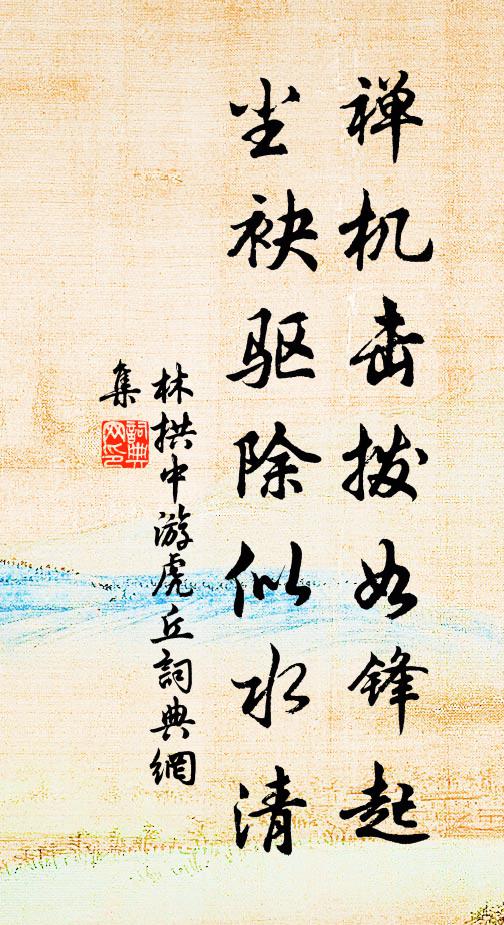 禅机击拨如锋起
尘袂驱除似水清
林拱中游虎丘詞典網
集
詞典網印